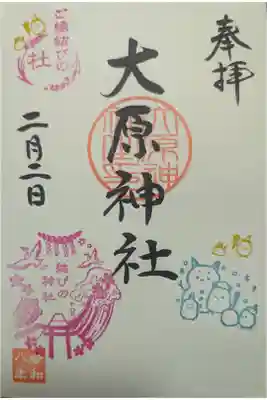 奉拝
大原神社
二月二日
ご縁結びの
社
縁結びの
神社
令和